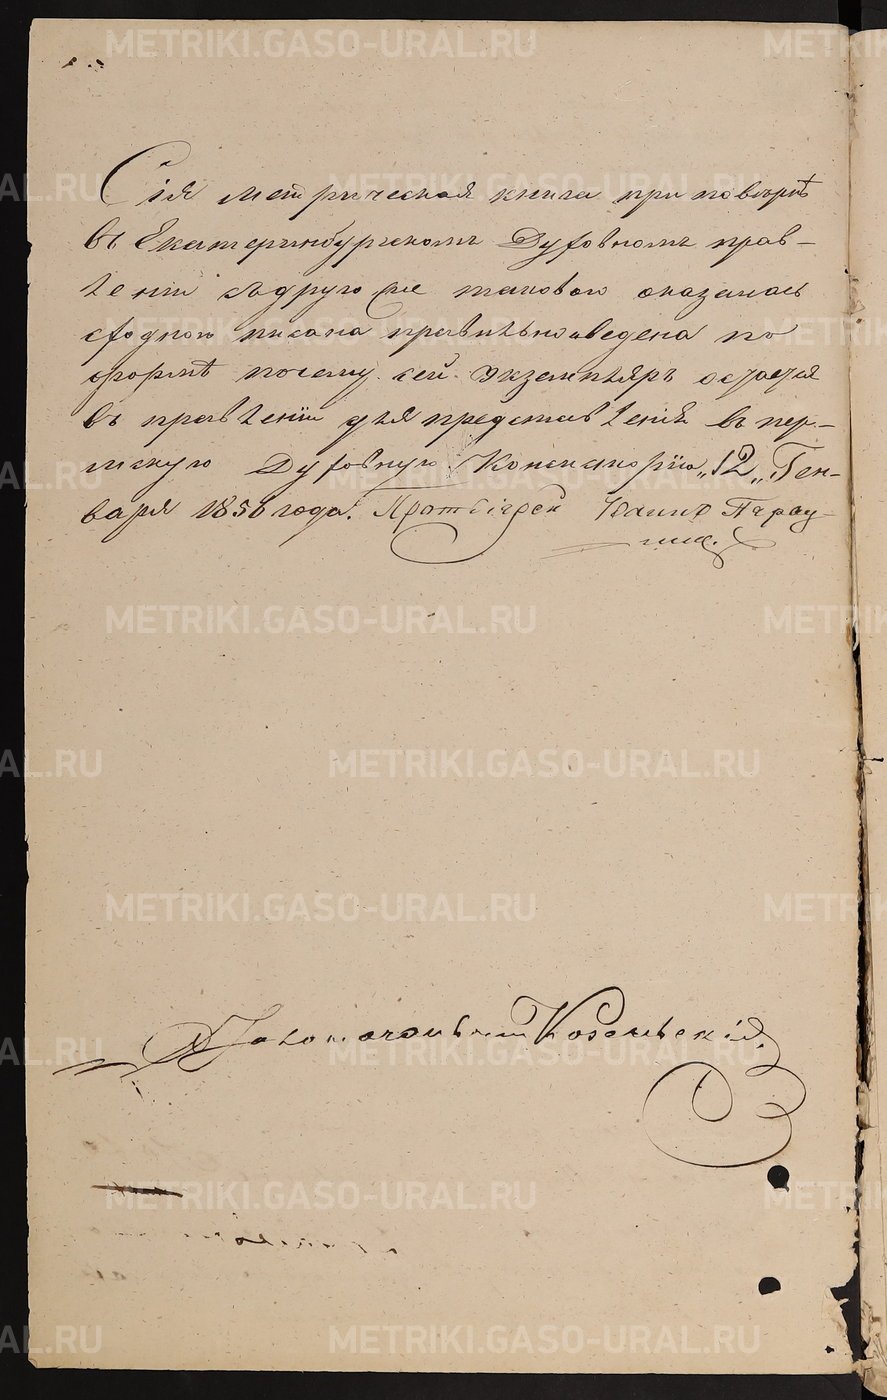 Сія метрическая книга при повѣркѣ
въ Екатеринбургскомъ Духовномъ прав-
леніи съ другою же таковою оказалась
сходною писана правильно и ведена по
формѣ почему сей экземпляръ остается
въ правленіи для представленія въ пер-
мскую Духовную Консисторію „12„ Ген-
варя 1856 года. Протоіерей
Столоначальникъ Козельскій.
METRIKI.GASO-URAL.RU